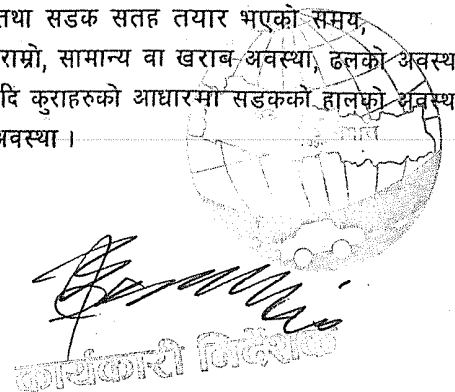 तथा सडक सतह तयार भएको समय,
राम्रो, सामान्य वा खराब अवस्था, ढलको अवस्थ
दि कुराहरुको आधारमा सडकको हालको अवस्थ
अवस्था ।
कार्यकारी निर्देशक